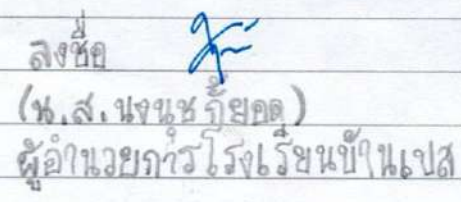 ลงชื่อ
(น.ส.นงนุช กี้ยอด)
ผู้อำนวยการโรงเรียนบ้านเปส